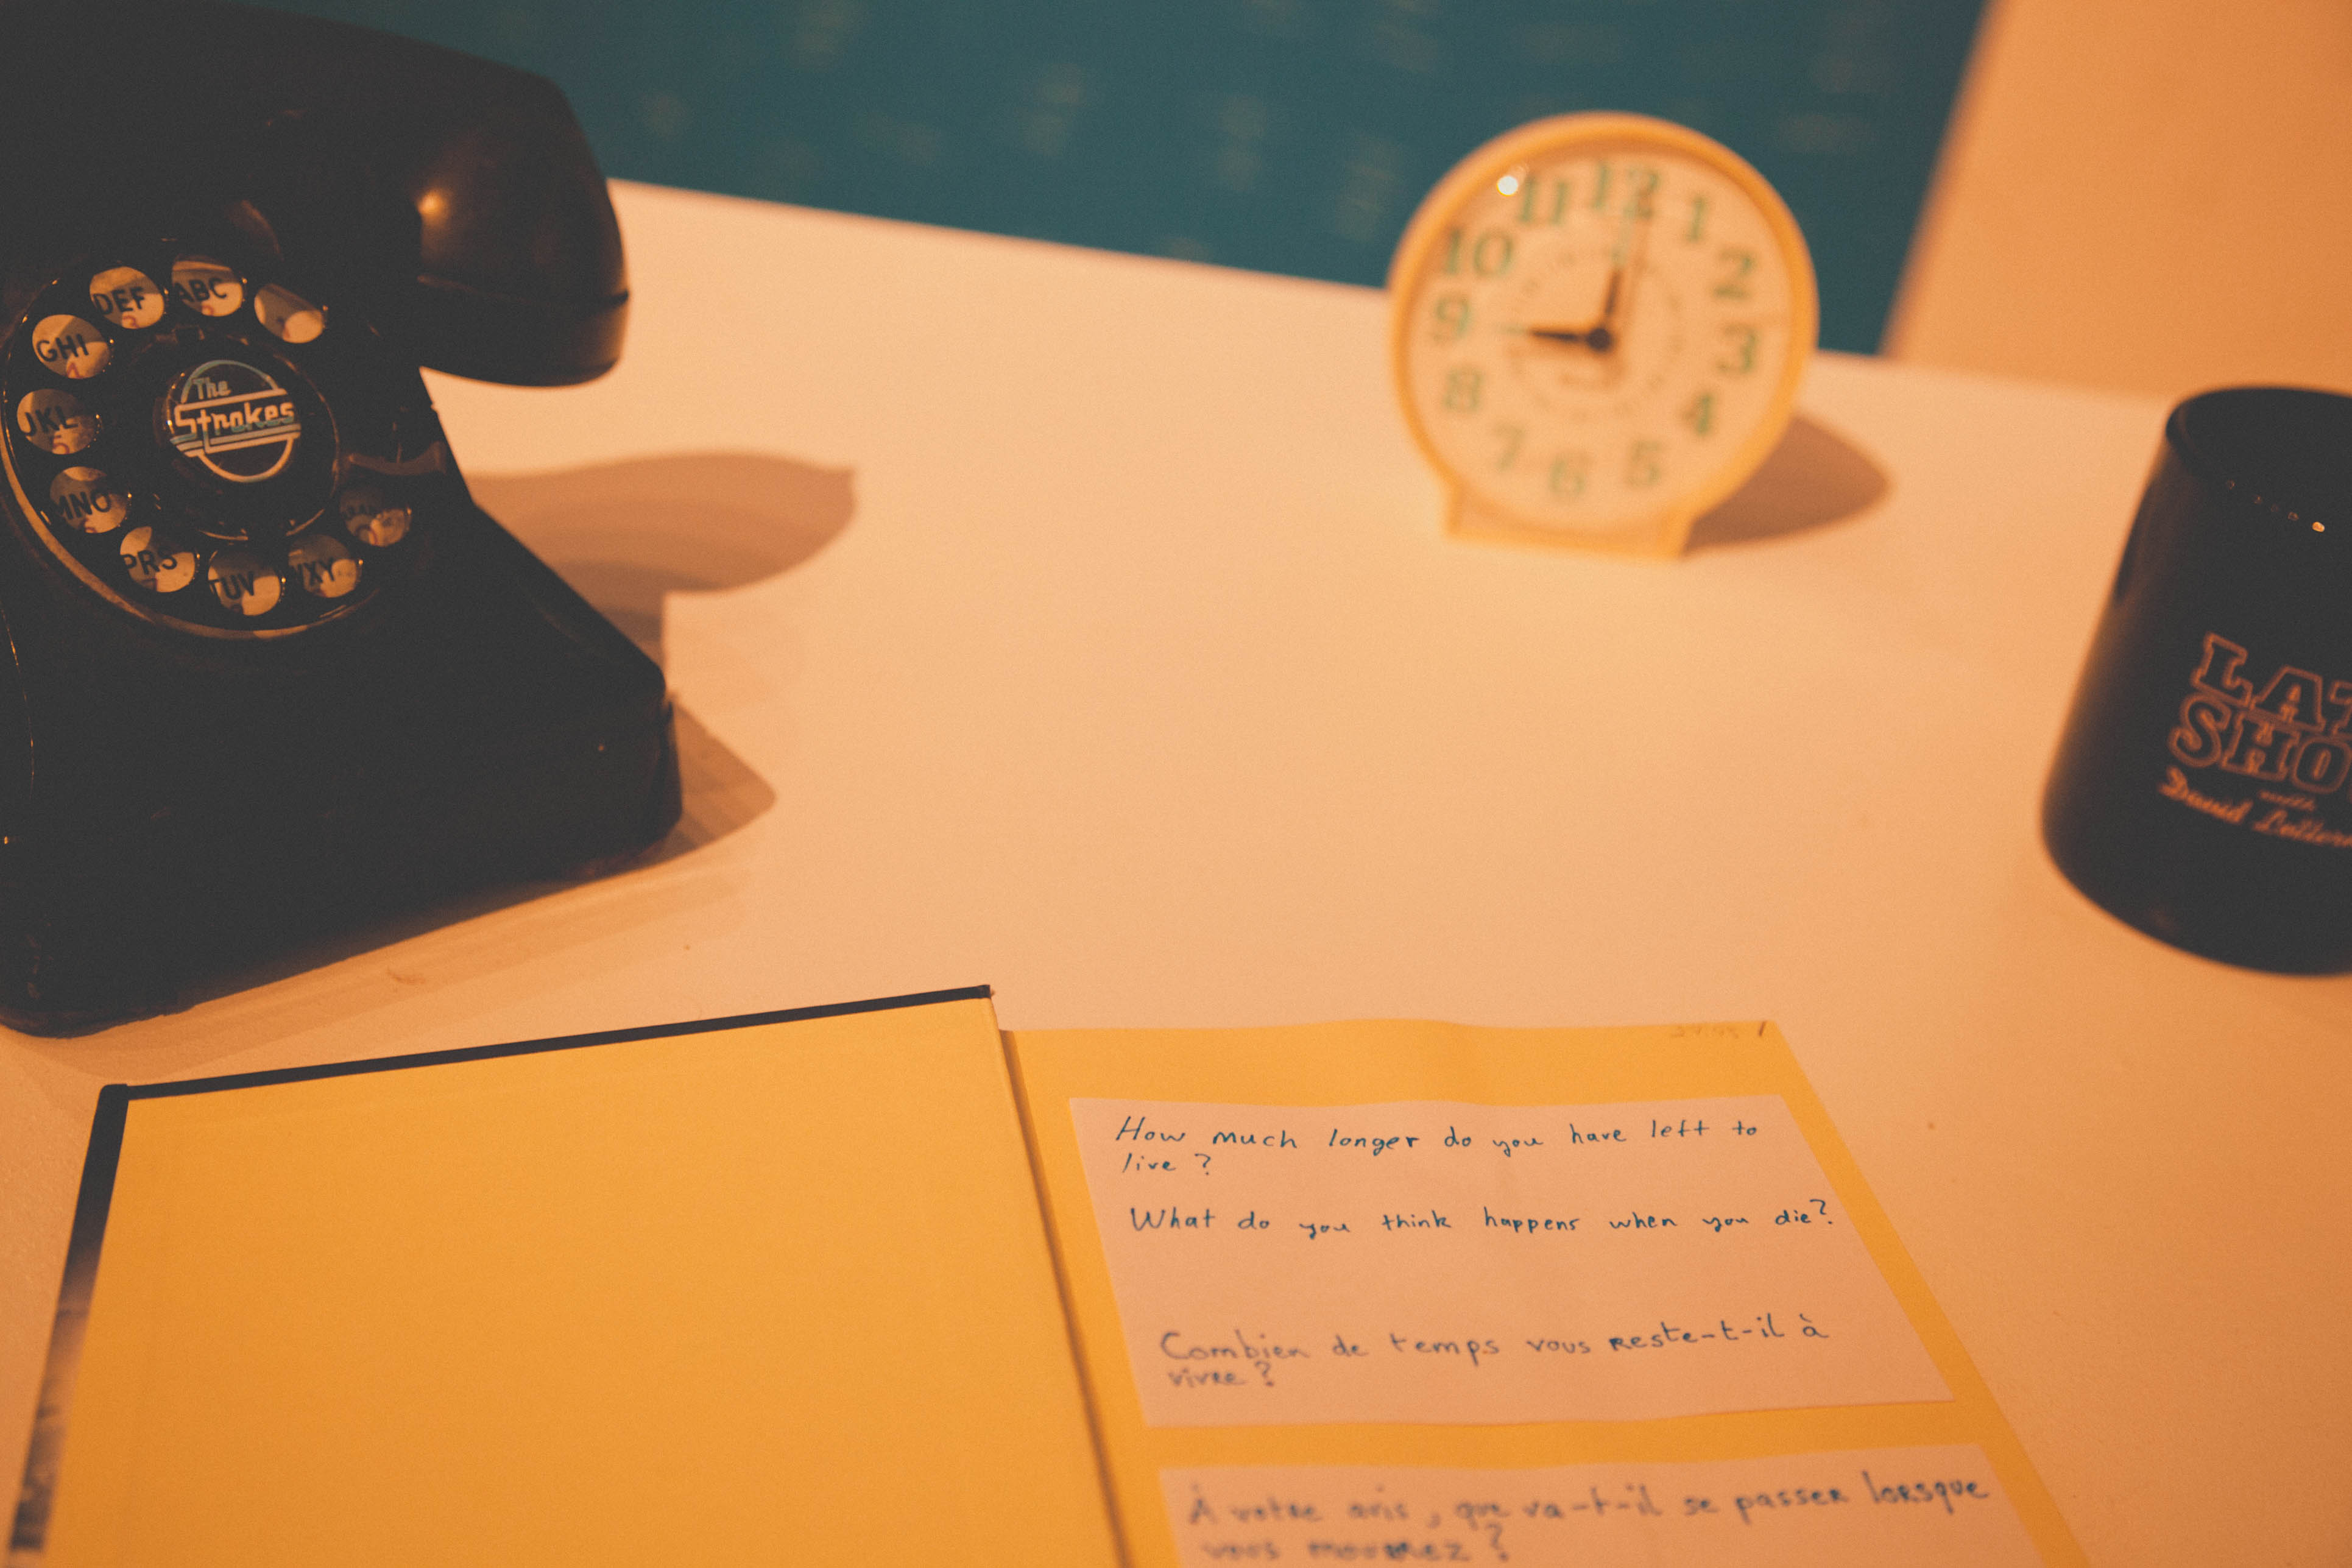 ABC
DEF
GHI
JKL
MNO
PRS
TUV
WXY
The
Strokes
11 12 1
10 2
9 3
8 4
7 6 5
LAT
SHO
with
David Letter
How much longer do you have left to
live ?
What do you think happens when you die?
Combien de temps vous reste-t-il à
vivre ?
À votre avis, que va-t-il se passer lorsque
vous mourrez ?